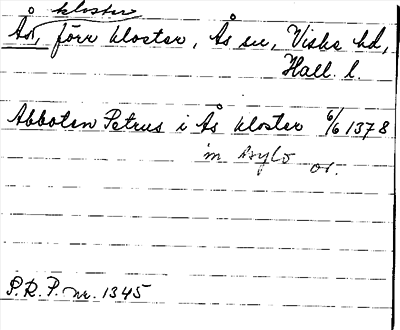 kloster
Ås, förr kloster, Ås sn, Viske hd,
Hall. l.
Abboten Petrus i Ås kloster 6/6 1378
m
or.
P.R.P. nr. 1345